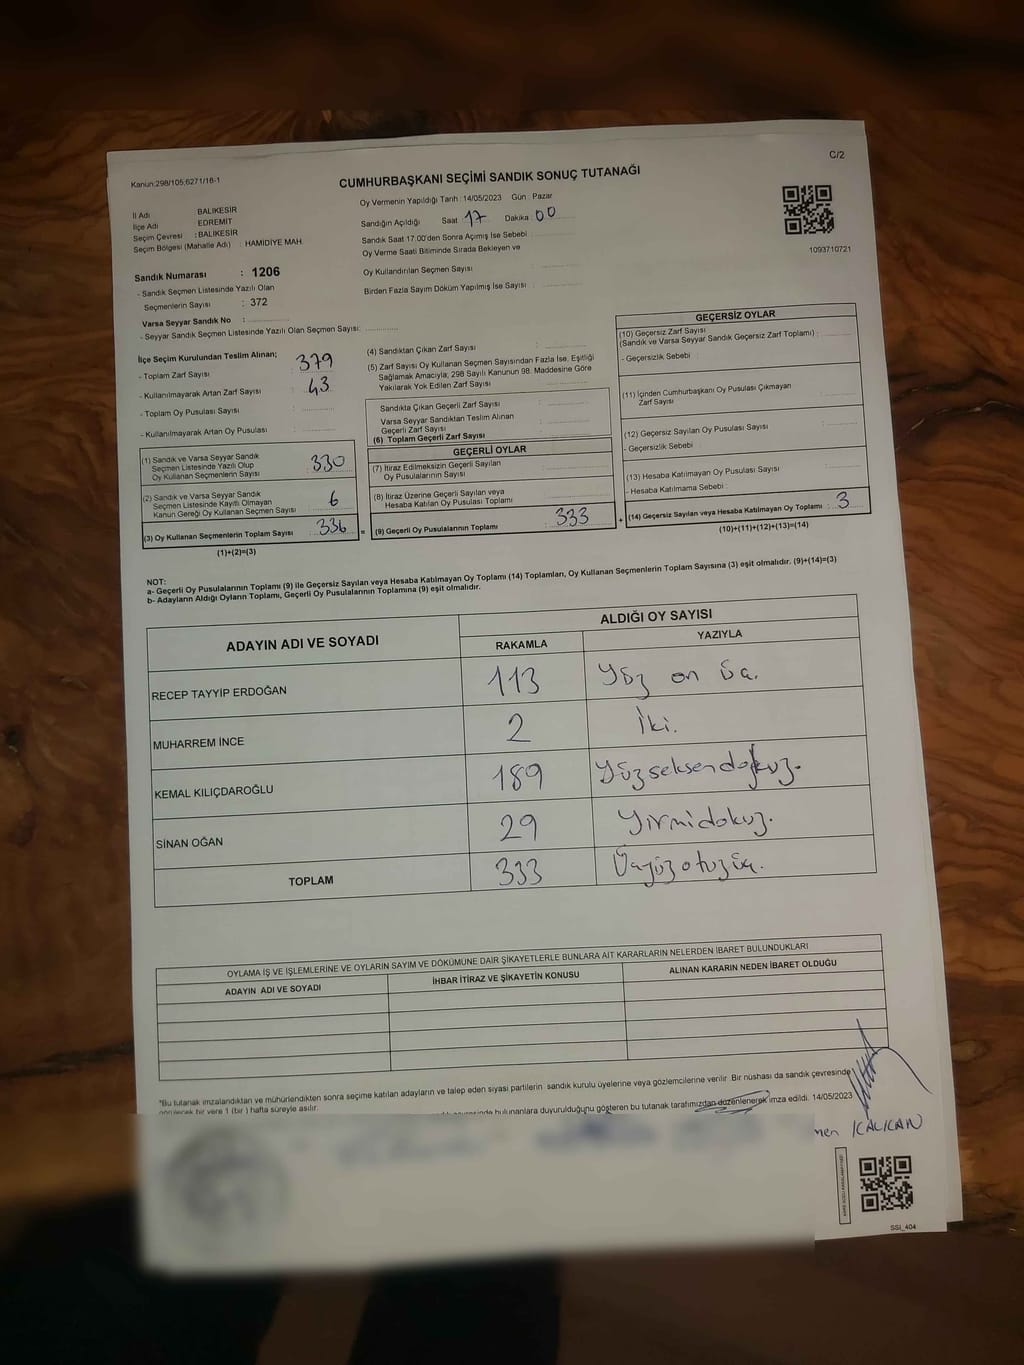 Kanun:298/105;6271/16-1
C/2
CUMHURBAŞKANI SEÇİMİ SANDIK SONUÇ TUTANAĞI
İl Adı BALIKESİR
İlçe Adı EDREMİT
Seçim Çevresi : BALIKESİR
Seçim Bölgesi (Mahalle Adı) : HAMIDIYE MAH.
Sandık Numarası : 1206
- Sandık Seçmen Listesinde Yazılı Olan
Seçmenlerin Sayısı : 372
Varsa Seyyar Sandık No :
- Seyyar Sandık Seçmen Listesinde Yazılı Olan Seçmen Sayısı:
Oy Vermenin Yapıldığı Tarih : 14/05/2023 Gün : Pazar
Sandığın Açıldığı Saat 17 Dakika : 00
Sandık Saat 17.00'den Sonra Açımış İse Sebebi
Oy Verme Saati Bitiminde Sırada Bekleyen ve
Oy Kullandırılan Seçmen Sayısı :
Birden Fazla Sayım Döküm Yapılmış İse Sayısı :
1093710721
İlçe Seçim Kurulundan Teslim Alınan;
- Toplam Zarf Sayısı : 379
- Kullanılmayarak Artan Zarf Sayısı : 43
- Toplam Oy Pusulası Sayısı :
- Kullanılmayarak Artan Oy Pusulası :
(1) Sandık ve Varsa Seyyar Sandık
Seçmen Listesinde Yazılı Olup
Oy Kullanan Seçmenlerin Sayısı : 330
(2) Sandık ve Varsa Seyyar Sandık
Seçmen Listesinde Kayıtlı Olmayan
Kanun Gereği Oy Kullanan Seçmen Sayısı : 6
(3) Oy Kullanan Seçmenlerin Toplam Sayısı : 336
(1)+(2)=(3)
(4) Sandıktan Çıkan Zarf Sayısı :
(5) Zarf Sayısı Oy Kullanan Seçmen Sayısından Fazla İse, Eşitliği
Sağlamak Amacıyla; 298 Sayılı Kanunun 98. Maddesine Göre
Yakılarak Yok Edilen Zarf Sayısı :
Sandıkta Çıkan Geçerli Zarf Sayısı :
Varsa Seyyar Sandıktan Teslim Alınan
Geçerli Zarf Sayısı :
(6) Toplam Geçerli Zarf Sayısı
GEÇERLİ OYLAR
(7) İtiraz Edilmeksizin Geçerli Sayılan
Oy Pusulalarının Sayısı :
(8) İtiraz Üzerine Geçerli Sayılan veya
Hesaba Katılan Oy Pusulası Toplamı :
= (9) Geçerli Oy Pusulalarının Toplamı : 333
GEÇERSİZ OYLAR
(10) Geçersiz Zarf Sayısı
(Sandık ve Varsa Seyyar Sandık Geçersiz Zarf Toplamı) :
- Geçersizlik Sebebi :
(11) İçinden Cumhurbaşkanı Oy Pusulası Çıkmayan
Zarf Sayısı :
(12) Geçersiz Sayılan Oy Pusulası Sayısı :
- Geçersizlik Sebebi :
(13) Hesaba Katılmayan Oy Pusulası Sayısı :
- Hesaba Katılmama Sebebi :
+ (14) Geçersiz Sayılan veya Hesaba Katılmayan Oy Toplamı : 3
(10)+(11)+(12)+(13)=(14)
NOT:
a- Geçerli Oy Pusulalarının Toplamı (9) ile Geçersiz Sayılan veya Hesaba Katılmayan Oy Toplamı (14) Toplamları, Oy Kullanan Seçmenlerin Toplam Sayısına (3) eşit olmalıdır. (9)+(14)=(3)
b- Adayların Aldığı Oyların Toplamı, Geçerli Oy Pusulalarının Toplamına (9) eşit olmalıdır.
ADAYIN ADI VE SOYADI ALDIĞI OY SAYISI
RAKAMLA YAZIYLA
RECEP TAYYİP ERDOĞAN 113 Yüz on üç.
MUHARREM İNCE 2 İki.
KEMAL KILIÇDAROĞLU 189 Yüzseksendokuz.
SİNAN OĞAN 29 Yirmidokuz.
TOPLAM 333 Üçyüzotuzüç.
OYLAMA İŞ VE İŞLEMLERİNE VE OYLARIN SAYIM VE DÖKÜMÜNE DAİR ŞİKAYETLERLE BUNLARA AİT KARARLARIN NELERDEN İBARET BULUNDUKLARI
ADAYIN ADI VE SOYADI İHBAR İTİRAZ VE ŞİKAYETİN KONUSU ALINAN KARARIN NEDEN İBARET OLDUĞU
*Bu tutanak imzalandıktan ve mühürlendikten sonra seçime katılan adayların ve talep eden siyasi partilerin sandık kurulu üyelerine veya gözlemcilerine verilir. Bir nüshası da sandık çevresinde
görülecek bir yere 1 (bir) hafta süreyle asılır.
bulunanlara duyurulduğunu gösteren bu tutanak tarafımızdan düzenlenerek imza edildi. 14/05/2023
men KALKAN
SSİ_404